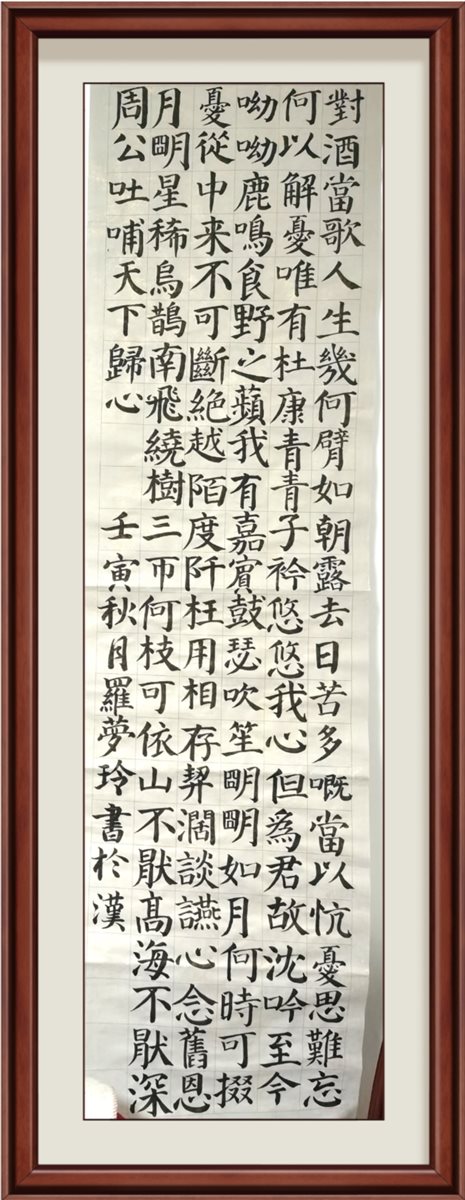 對酒當歌人生幾何臂如朝露去日苦多嘅當以忼憂思難忘
何以解憂唯有杜康青青子衿悠悠我心但爲君故沈吟至今
呦呦鹿鳴食野之蘋我有嘉賓鼓瑟吹笙朙朙如月何時可掇
憂從中来不可斷絕越陌度阡枉用相存契濶談讌心念舊恩
月朙星稀烏鵲南飛繞樹三帀何枝可依山不猒髙海不猒深
周公吐哺天下歸心 壬寅秋月羅夢玲書於漢